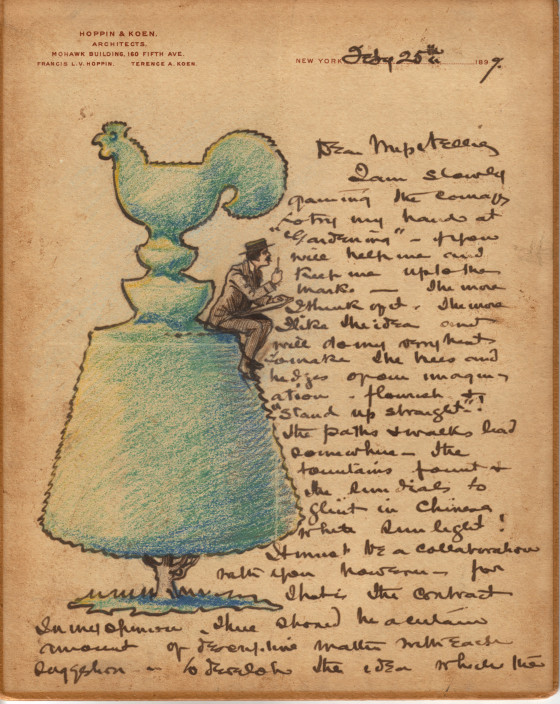 HOPPIN & KOEN.
ARCHITECTS.
MOHAWK BUILDING, 160 FIFTH AVE.
FRANCIS L.V. HOPPIN. TERENCE A. KOEN.
NEW YORK, 25th 1897.
Dear
I am slowly
gaining the courage
to try my hand at
"Gardening" - if you
will help me and
keep me up to the
marks - The more
I think of it - the more
I like the idea and
will do my very best
to make the trees and
hedges of our imagin-
ation - flourish &
"Stand up straight"!
The paths & walks lead
somewhere - the
fountains fount &
the sun dials to
glint in Chinese
white sun light!
It must be a collaboration
with you however - for
that is the contract
In my opinion there should be a certain
amount of matter with each
suggestion - to develop the idea which the